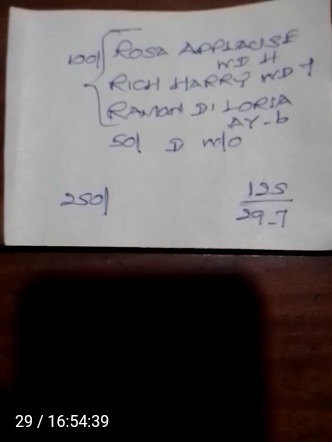 100/ ROSA APPLAUSE
WD H
RICH HARRY WD -1
RAMON DI LORIA
AY-b
50/ D W/O
250/
125
29-7
29 / 16:54:39